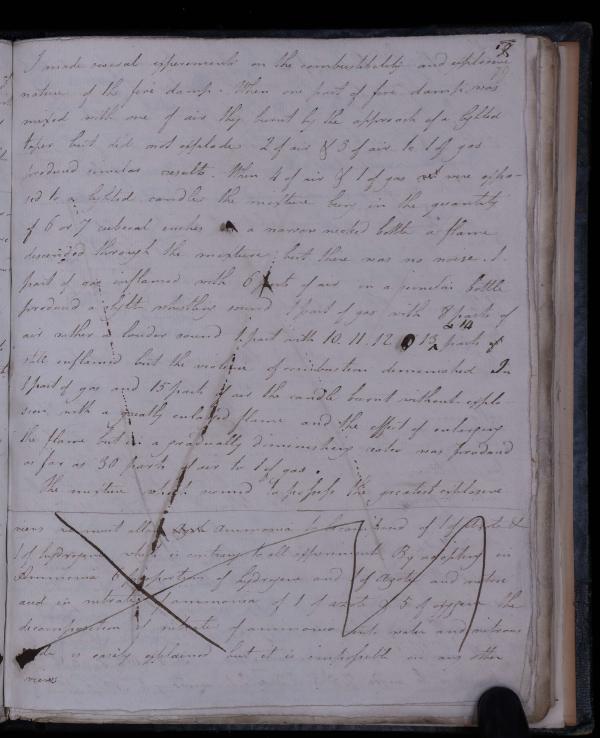 8
I made several experiments on the combustibility and explosive
nature of the fire damp. When one part of fire damp was
mixed with one of air they burnt by the approach of a lighted
taper but did not explode 2 of air & 3 of air to 1 of gas
produced similar results. When 4 of air & 1 of gas were expo-
sed to a lighted candle the mixture being in the quantity
of 6 or 7 cubical inches in a narrow necked bottle a flame
descended through the mixture; but there was no noise. 1
part of gas inflamed with 6 parts of air in a similar bottle
produced a slight whistling sound 1 part of gas with 8 parts of
air rather a louder sound 1 part with 10. 11. 12. 13 & 14 parts
still inflamed but the violence of combustion diminished In
1 part of gas and 15 parts of air the candle burnt without explo-
sion with a greatly enlarged flame and the effect of enlarging
the flame but in a gradually diminishing ratio was produced
as far as 30 parts of air to 1 of gas.
The mixture which seemed to possess the greatest explosive
views we must allow Ammonia to be composed of 1 of Azote &
1 of hydrogene which is contrary to all experiment By adopting in
Ammonia 6 proportions of hydrogene and 1 of Azote and nitric
acid in nitrate of ammonia of 1 of azote & 5 of oxygen the
decomposition of nitrate of ammonia into water and nitrous
oxide is easily explained but it is impossible on any other
views